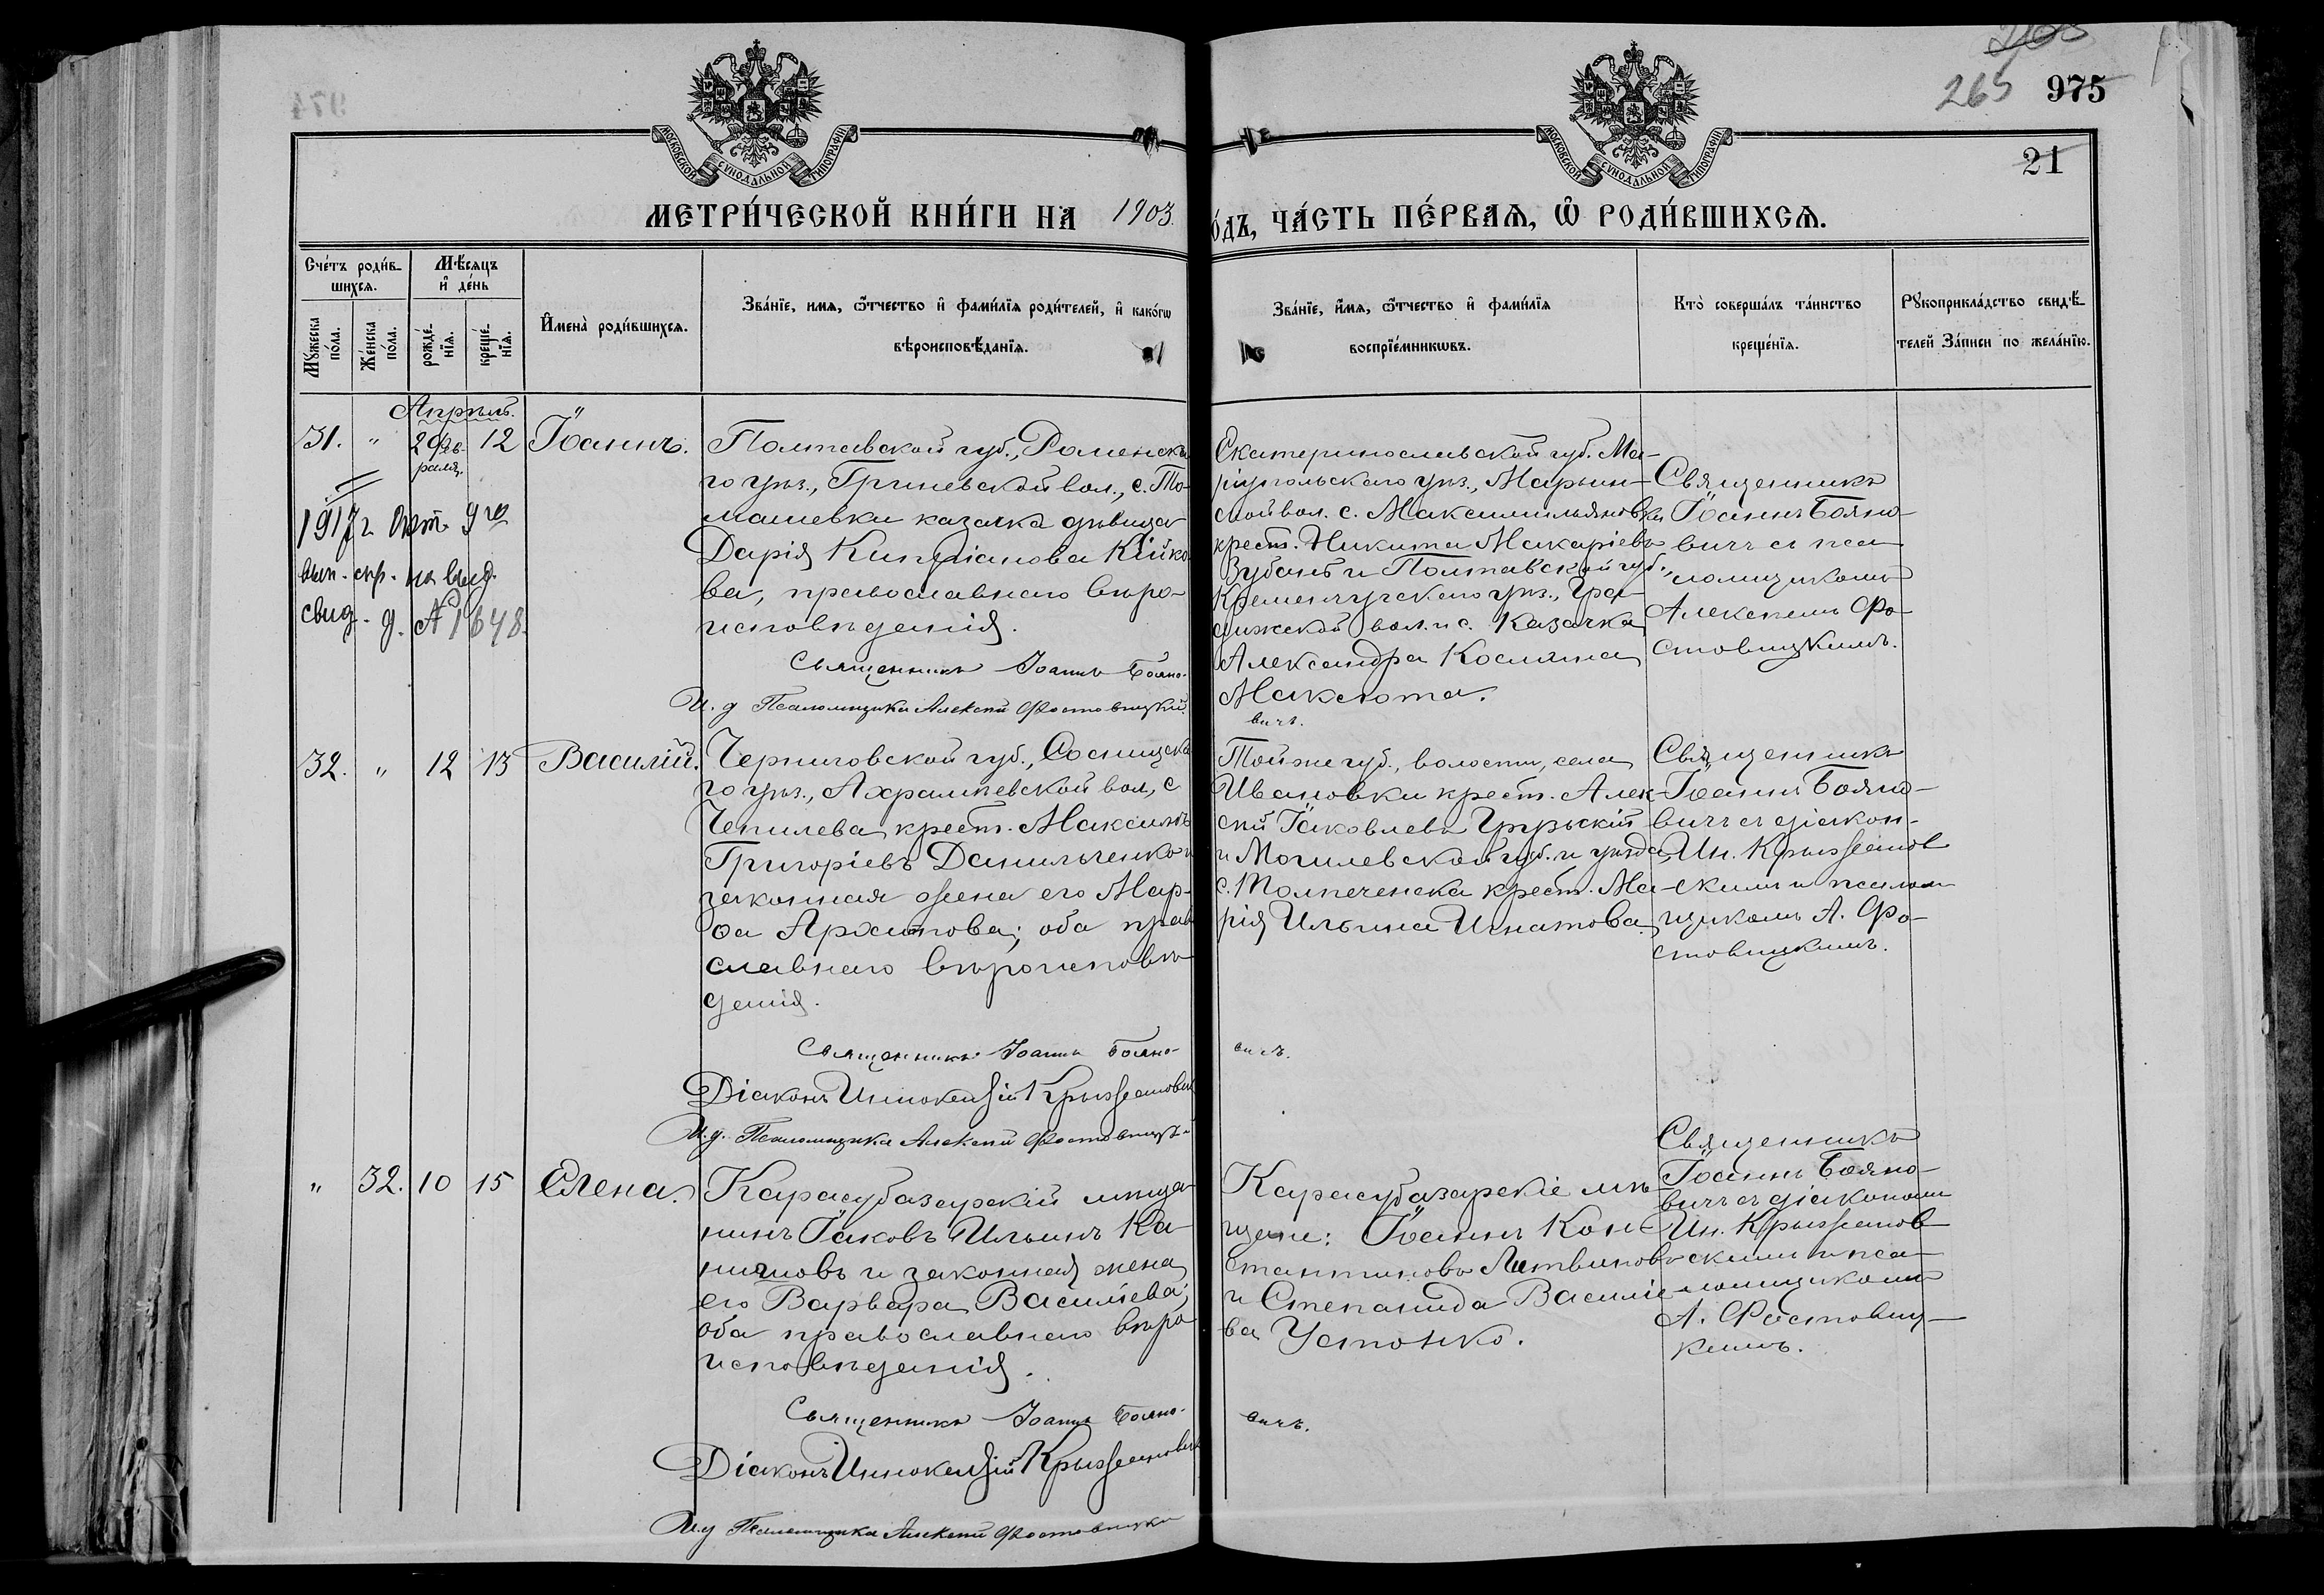 974
265
265 975
МОСКОВСКОЙ СѴНОДАЛЬНОЙ ТИПОГРАФІИ
МОСКОВСКОЙ СѴНОДАЛЬНОЙ ТИПОГРАФІИ
21
МЕТРИ́ЧЕСКОЙ КНИ́ГИ НА 1903.
О́ДЪ, ЧА́СТЬ ПЕ́РВАѦ, Ѿ РОДИ́ВШИХСѦ.
Сче́тъ роди́в-
шихсѧ.
Мꙋ́жеска по́ла.
Же́нска по́ла.
Мѣ́сяцъ
и҆ де́нь
рожде́-нїѧ.
креще́-нїѧ.
И҆мена̀ роди́вшихсѧ.
Зва́нїе, имѧ, ѻ҆́тчество и҆ фами́лїѧ роди́телей, и҆ како́гѡ
вѣроисповѣ́данїѧ.
Зва́нїе, и҆́мѧ, ѻ҆́тчество и҆ фами́лїѧ
воспрїе́мникѡвъ.
Кто̀ соверша́лъ та́инство
креще́нїѧ.
Рꙋкоприкла́дство свидѣ́-
телей За́писи по жела́нїю.
Апрѣль.
31. " 2 Фев-
раля. 12 Іоаннъ.
1917 г. Окт. 9го
вып. спр. на выд.
свид. д. № 1648.
Полтавской губ., Роменска
го уѣз., Гриневской вол., с. То-
машевки казачка дѣвица
Дарія Кипріанова Кійко
ва, православнаго вѣро-
исповѣданія.
Священникъ Іоаннъ Бояно-
И. д. Псаломщика Алексѣй Фостовицкій.
Екатеринославской губ. Ма-
ріупольскаго уѣз., Марьин-
ской вол. с. Максимильяновки
крест. Никита Макаріевъ
Зубань и Полтавской губ.,
Кременчугскаго уѣз., Гра-
дижской вол. и с. Казачка
Александра Космина
Маклюта.
вичъ.
Священникъ
Іоаннъ Бояно-
вичъ съ пса-
ломщикомъ
Алексѣемъ Фо-
стовицкимъ.
32. " 12 13 Василій.
Черниговской губ., Сосницска
го уѣз., Ахрамѣевской вол., с
Чепилева крест. Максимъ
Григоріевъ Данильченко и
законная жена его Мар-
ѳа Архипова; оба право
славнаго вѣроисповѣ
данія.
Священникъ Іоаннъ Бояно-
Діаконъ Иннокентій Крыжановск
И. д. Псаломщика Алексѣй Фостовицкій
Той же губ., волости, села
Ивановки крест. Алек-
сѣй Іаковлевъ
и Могилевской губ. и уѣзда,
с. Толпеченска крест. Ма-
рія Ильина Игнатова.
вичъ.
Священникъ
Іоаннъ Бояно-
вичъ съ діакон-
Ин. Крыжанов
скимъ и псалом
щикомъ А. Фо-
стовицкимъ.
" 32. 10 15 Елена.
Карасубазарскій мѣща
нинъ Іаковъ Ильинъ Ка-
и законная жена
его Варвара Василіева;
оба православнаго вѣро
исповѣданія.
Священникъ Іоаннъ Бояно-
Діаконъ Иннокентій Крыжановск
И. д. Псаломщика Алексѣй Фостовицкій
Карасубазарскіе мѣ-
щане: Іоаннъ Кон-
стантиновъ Литвиновъ
и Степанида Василіе-
ва Устонко.
вичъ.
Священникъ
Іоаннъ Бояно-
вичъ съ діакономъ
Ин. Крыжанов
скимъ и пса-
ломщикомъ
А. Фостовиц-
кимъ.